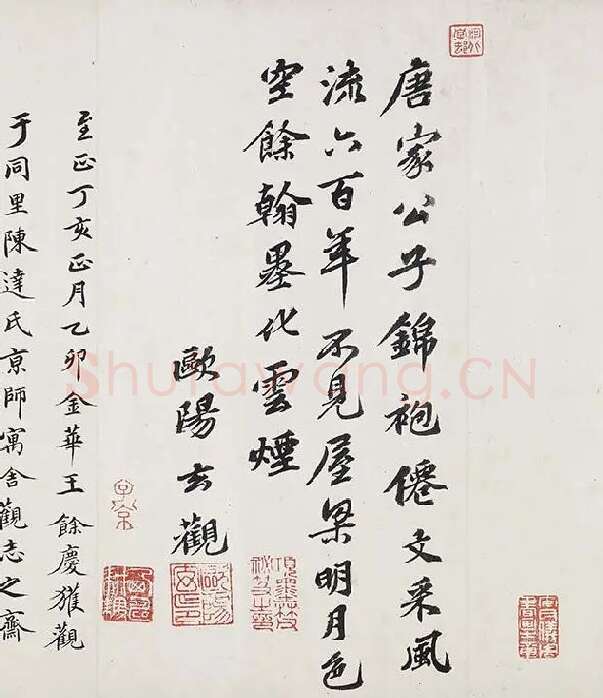 唐家公子錦袍僊文采風
流六百年不見屋梁明月色
空餘翰墨化雲煙
歐陽玄觀
至正丁亥正月乙卯金華王餘慶獲觀
于同里陳達氏京師寓舍觀志之齋
Shufawang.CN
子京
項墨林父
祕笈之印
歐陽
玄印